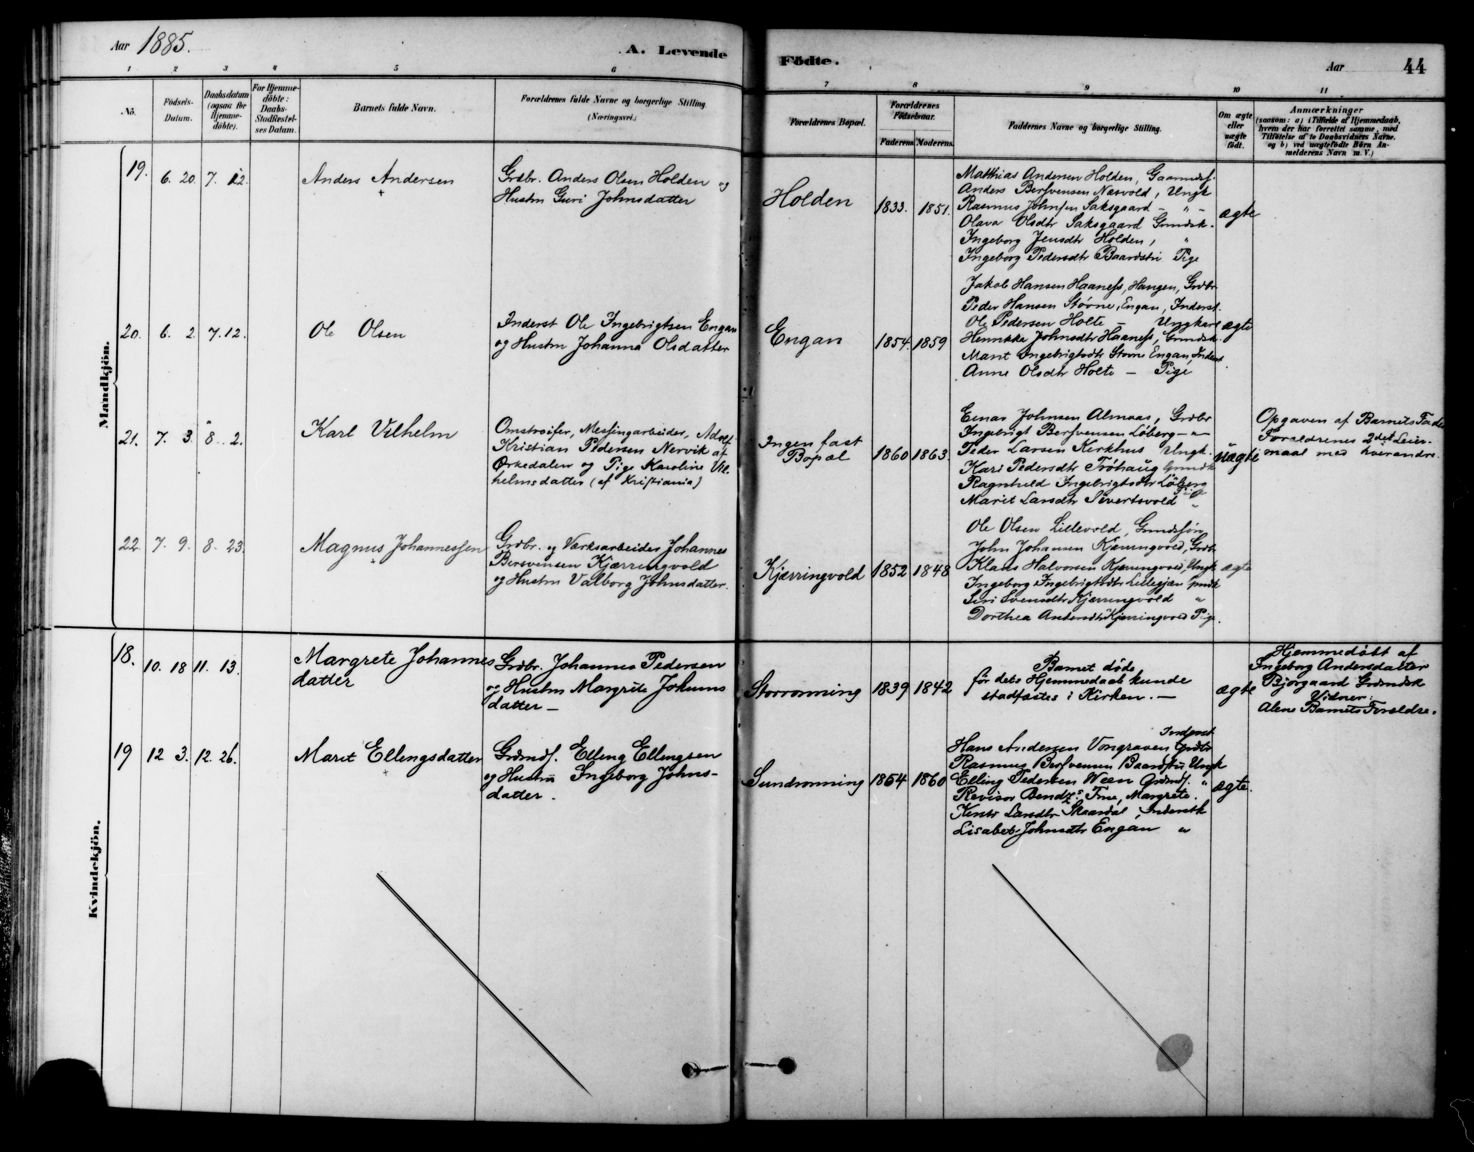 Aar 1885.
A. Levende
Fødte.
Aar
44
1 2 3 4 5 6 7 8 9 10 11
No.
Fødsels-
Datum.
Daabsdatum
(ogsaa for
Hjemme-
døbte).
For Hjemme-
døbte:
Daabs-
Stadfæstel-
ses Datum.
Barnets fulde Navn.
Forældrenes fulde Navne og borgerlige Stilling
(Næringsvei.)
Forældrenes Bopæl.
Forældrenes
Fødselsaar.
Faderens
Moderens.
Faddernes Navne og borgerlige Stilling.
Om ægte
eller
uægte
født.
Anmærkninger
(saasom: a) i Tilfælde af Hjemmedaab,
hvem der har forrettet samme, med
Tilføielse af to Daabsvidners Navne.
og b) ved uægtefødte Børn An-
melderens Navn m. V.)
Mandkjön.
19.
6. 20.
7. 12.
Anders Andersen
+
Grdbr. Anders Olsen Holden og
Hustru Guri Johnsdatter
Holden
1833.
1851.
Matthias Andersen Holden, Gaardmf.
Anders Bersvensen Næsvold, Ungk.
Rasmus Johnsen Saksgaard - " -
Olava Olsdtr Saksgaard Grmdsk.
Ingeborg Jensdtr Holden, "
Ingeborg Pedersdtr Baardstu Pige
ægte
20.
6. 2
7. 12.
Ole Olsen
Inderst Ole Ingebrigtsen Engan
og Hustru Johanna Olsdatter
Engan
1854.
1859
Jakob Hansen Haanæss, Haugen, Grdbr
Peder Hansen Støvne, Engan, Inderst.
Ole Pedersen Holte - Ungkarl
Johnsdtr Haanæss, Grmdsk.
Marit Ingebrigtsdtr Støvne Engan, Inderst
Anne Olsdtr Holte - Pige
ægte
21.
7. 3.
8. 2.
Karl Vilhelm
Omstreifer, Messingarbeider, Adolf
Kristian Pedersen Nervik af
Ørkedalen og Pige Karoline Vil
helmsdatter (af Kristiania)
Ingen fast
Bopæl
1860
1863.
Einar Johnsen Almaas, Grdbr
Ingebrigt Bersvensen Løberg - "
Peder Larsen Kirkhus Ungk.
Kari Pedersdtr Trøhaug Grmdsk
Ragnhild Ingebrigtsdtr Løberg
Marit Larsdtr Sivertsvold "
Pige
uægte
Opgaven af Barnets Fader
Forældrenes 2det Leier-
maal med hverandre.
22.
7. 9.
8. 23.
Magnus Johannessen
+
Grdbr. og Værksarbeider Johannes
Bersvensen Kjærringvold
og Hustru Valborg Johnsdatter.
Kjærringvold
1852
1848
Ole Olsen Lillevold, Grmdssøn
John Johansen Kjærringvold, Grdbr
Klaus Halvorsen Kjærringvold, Ungk
Ingeborg Ingebrigtsdtr Lillesjan Grmdsk
Siri Svensdtr Kjærringvold "
Dorthea Andersdtr Kjærringvold Pige.
ægte
Kvindekjön.
18.
10. 18
11. 13.
Margrete Johannes
datter
Grdbr. Johannes Pedersen
og Hustru Margrete Johanns
datter -
Storrønning
1839
1842
Barnet døde
før dets Hjemmedaab kunde
stadfæstes i Kirken. -
ægte
Hjemmedøbt af
Ingeborg Andersdatter
Bjørgaard Grdmdsk
Vidner:
Alene Barnets Forældre.
19
12 3.
12. 26.
Marit Ellingsdatter
Grdmdf. Elling Ellingsen
og Hustru Ingeborg Johns-
datter.
Sundrønning
1854
1860
Inderst
Hans Andersen Vongraven Grdbr
Rasmus Bersvensen Baardstu Ungk
Elling Pedersen Ween Grdmdf. "
Revisor Bendz's Frue, Margrete.
Kirstr Larsdtr Skaardal, Indersterk
Lisabet Johnsdtr Engan "
ægte.